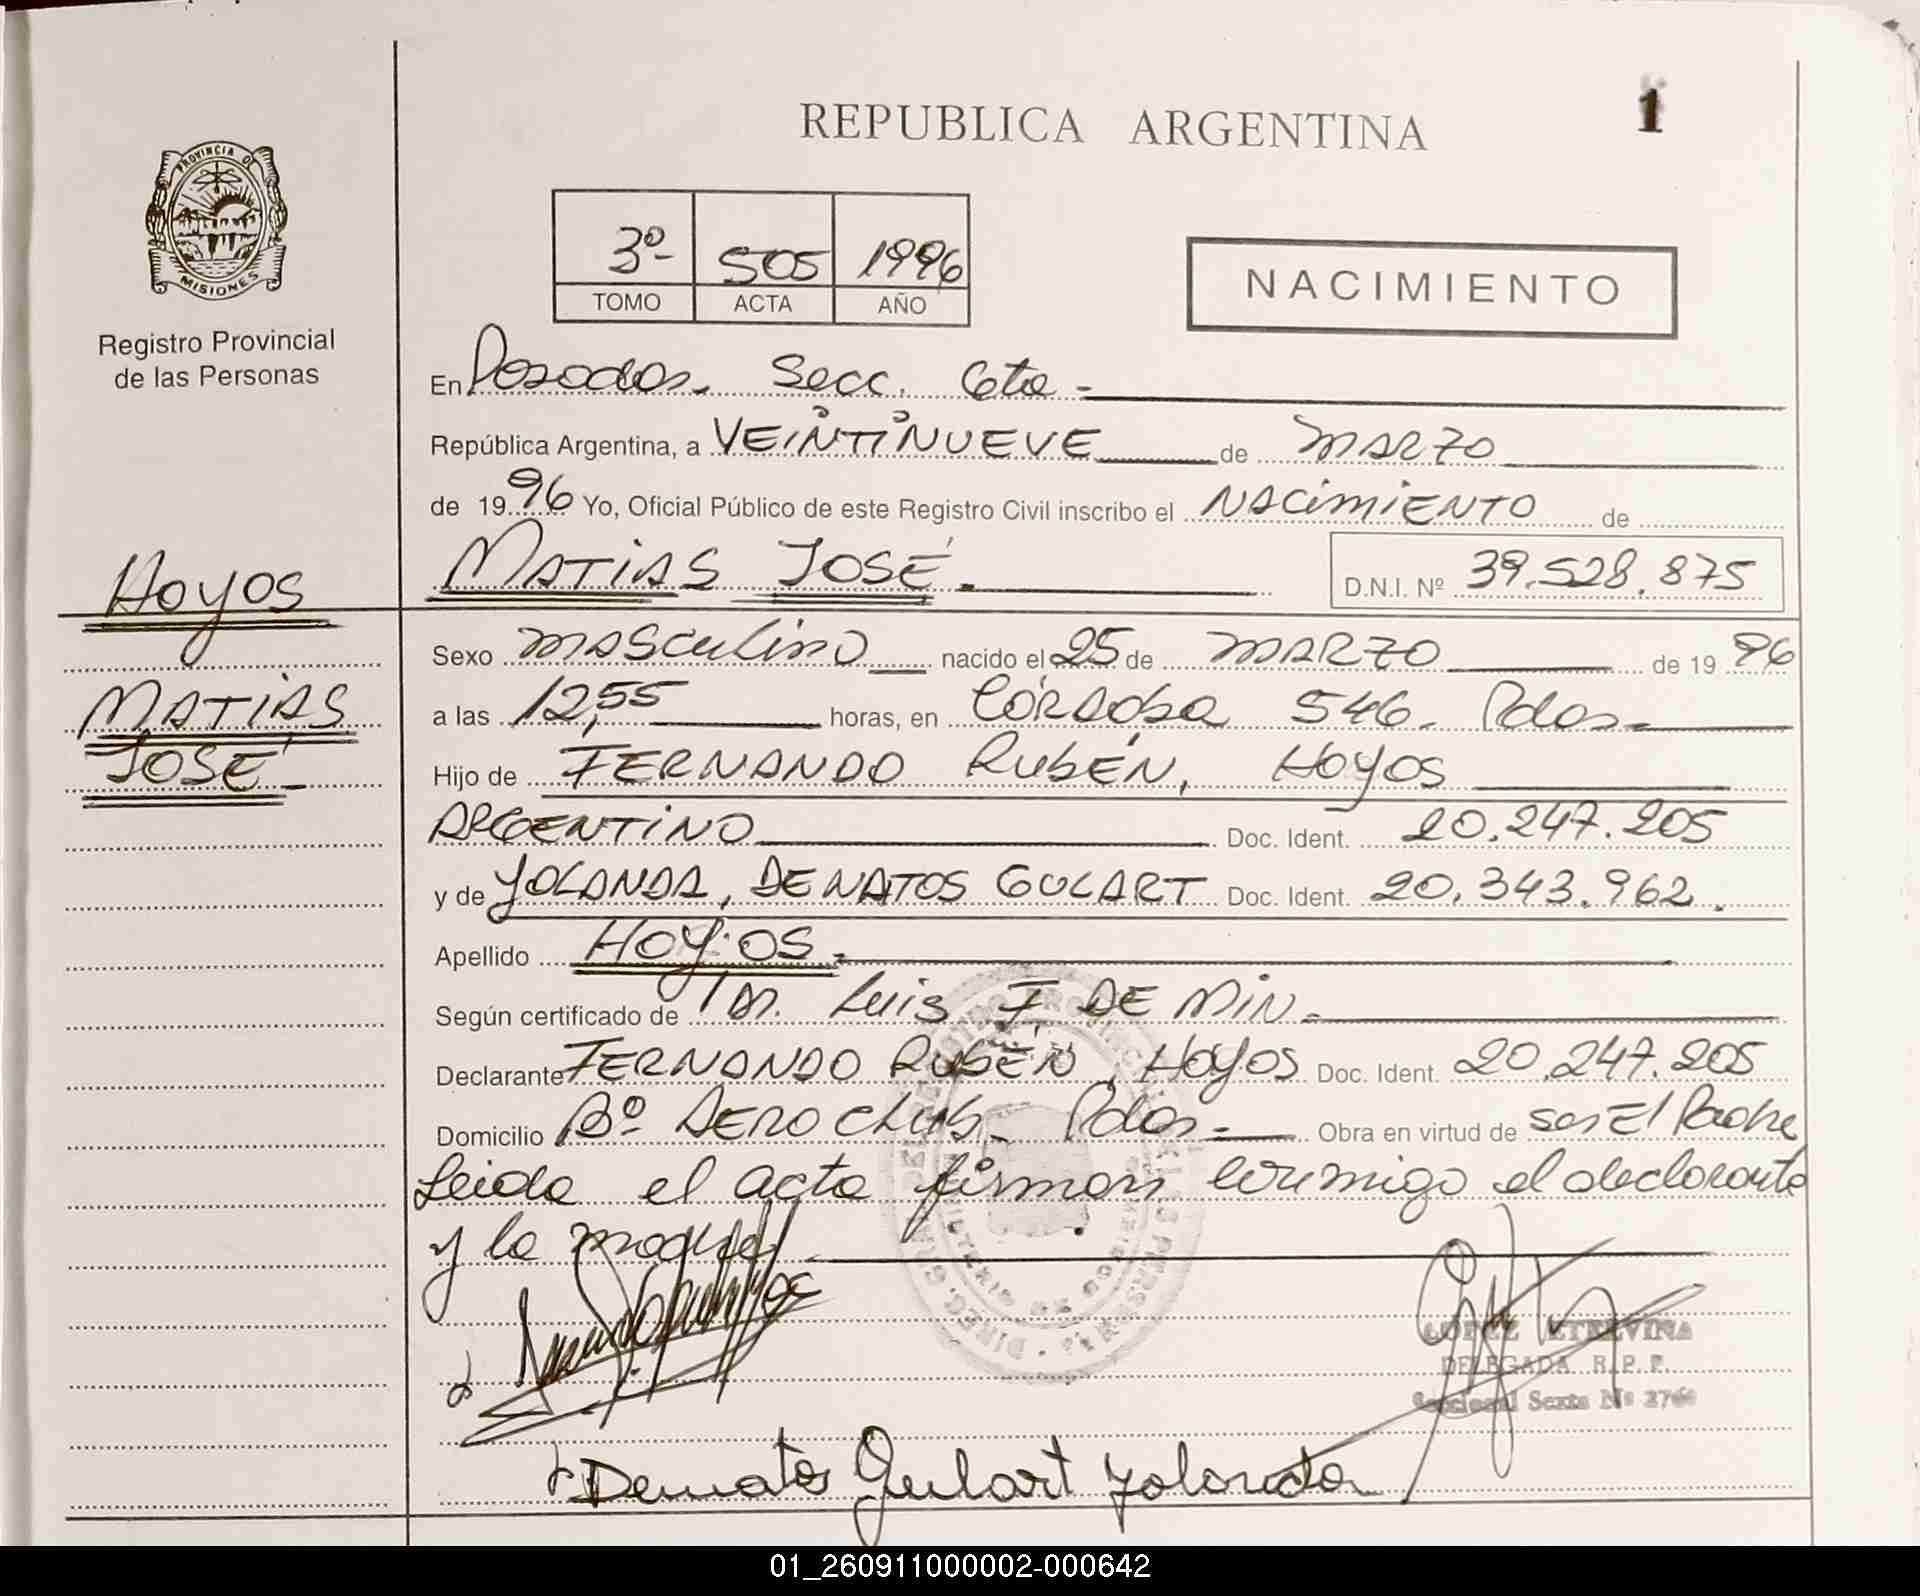 REPUBLICA ARGENTINA
1
PROVINCIA DE
MISIONES
Registro Provincial
de las Personas
3º- 505 1996
TOMO ACTA AÑO
NACIMIENTO
En Posadas. Secc. 6ta -
República Argentina, a VEINTINUEVE de MARZO
de 1996 Yo, Oficial Público de este Registro Civil inscribo el NACIMIENTO de
HOYOS
MATIAS JOSÉ.
D.N.I. Nº 39.528.875
MATIAS
JOSÉ
Sexo masculino nacido el 25 de MARZO de 1996
a las 12,55 horas, en CÓRDOBA 546. Pdas.
Hijo de FERNANDO RUBÉN, HOYOS
ARGENTINO Doc. Ident. 20.247.205
y de YOLANDA, DE MATOS GULART Doc. Ident. 20.343.962.
Apellido HOYOS.
Según certificado de Dr. Luis F. DE MIN.
Declarante FERNANDO RUBÉN, HOYOS Doc. Ident. 20.247.205
Domicilio Bº AEROCLUB. Pdas. Obra en virtud de ser El Padre
Leida el acta firman conmigo el declarante
y la madre
LOPEZ ETELVINA
DELEGADA R. P. P.
Seccional Sexta Nº 2760
Demato Gulart Yolanda
01_260911000002-000642